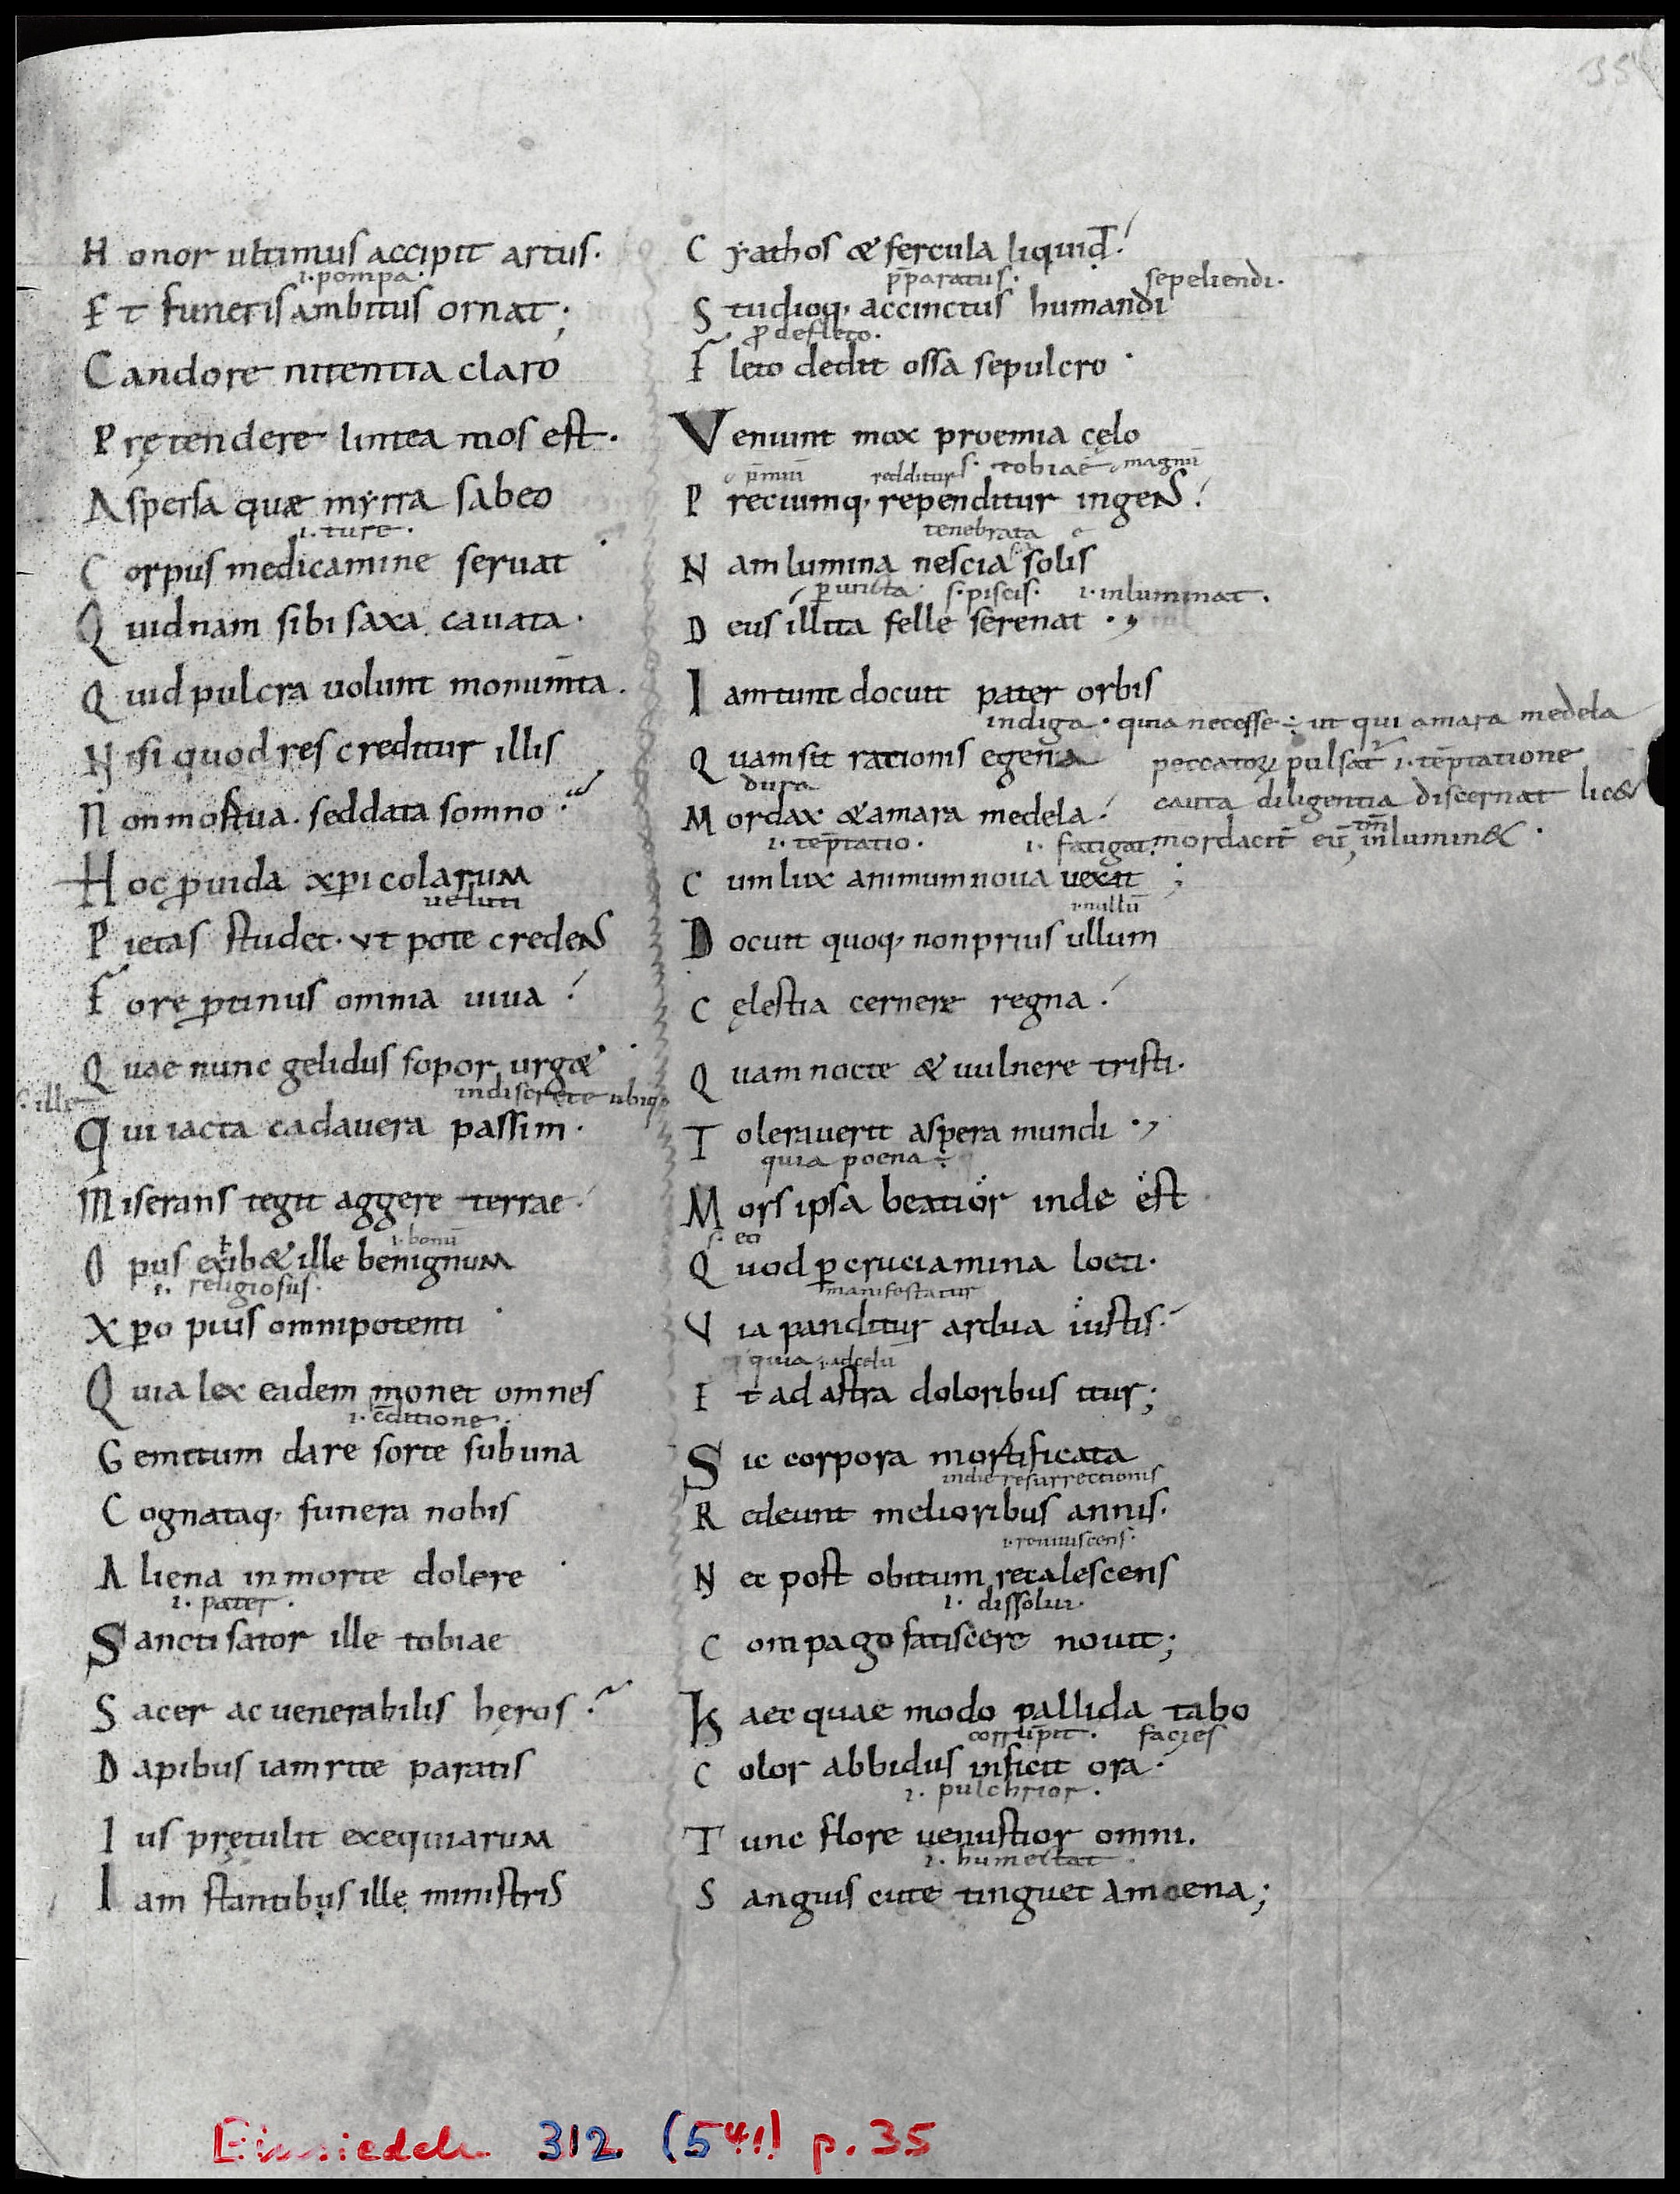 H onor ultimus accipit artus.
.i. pompa.
E t funeris ambitus ornat;
C andore nitentia claro
P rętendere lintea mos est.
A spersa quæ myrra sabeo
.i. ture.
C orpus medicamine seruat
Q uidnam sibi saxa cauata.
Q uid pulcra uolunt monum̄ta.
N isi quod res creditur illis
N on mostua. sed data somno
H oc ꝓuida xp̄icolarum
ueluti
P ietas studet. ut pote credens
F ore ꝓtinus omnia uiua
Q uae nunc gelidus sopor urg&
s. ille
indiscrete ubiq;
Q ui iacta cadauera passim.
M iserans tegit aggere terrae
.i. bonū
O pus exib& ille benignum
.i. religiosus.
X p̄o pius omnipotenti
Q uia lex eadem monet omnes
.i. c̄ditione.
G emitum dare sorte sub una
C ognataq; funera nobis
A liena in morte dolere
.i. pater.
S ancti sator ille tobiae
S acer ac uenerabilis heros
D apibus iam rite paratis
I us prętulit exequiarum
I am stantibus ille ministris
C yathos & fercula liquid
p̄paratus. sepeliendi.
S tudioq; accinctus humandi
ꝓ defleto.
F leto dedit ossa sepulcro
V eniunt mox proemia cęlo
p̄miū redditur s. tobiae magnū
P reciumq; rependitur ingens
tenebrata
N am lumina nescia solis
ꝑuncta s. piscis. .i. inluminat.
D eus illita felle serenat
I am tunc docuit pater orbis
indiga. quia necesse ÷ ut qui amara medela
Q uam sit rationis egena
peccatorꝝ pulsat᷑ .i. tēptatione
dura
cauta diligentia discernat lic&
M ordax & amara medela
.i. tēptatio. .i. fatigat. mordacit̄ eū, tm̄ inlumin&.
C um lux animum noua uexit;
.i. nullū
D ocuit quoq; non prius ullum
C ęlestia cernere regna
Q uam nocte & uulnere tristi.
T olerauerit aspera mundi
quia poena ÷
M ors ipsa beatior inde est
Q uod ꝑ cruciamina loeti.
manifestatur
V ia panditur ardua iustis
quia .i. ad celū
E t ad astra doloribus itur;
S ic corpora mortificata
in die resurrectionis
R edeunt melioribus annis.
.i. reuiuiscens.
N ec post obitum recalescens
.i. dissolui.
C ompago fatiscere nouit;
H aec quae modo pallida tabo
corrūpit. facies
C olor abbidus inficit ora
.i. pulchrior.
T unc flore uenustior omni.
.i. humectat
S anguis cute tinguet amoena;
Einsiedeln 312 (541) p. 35